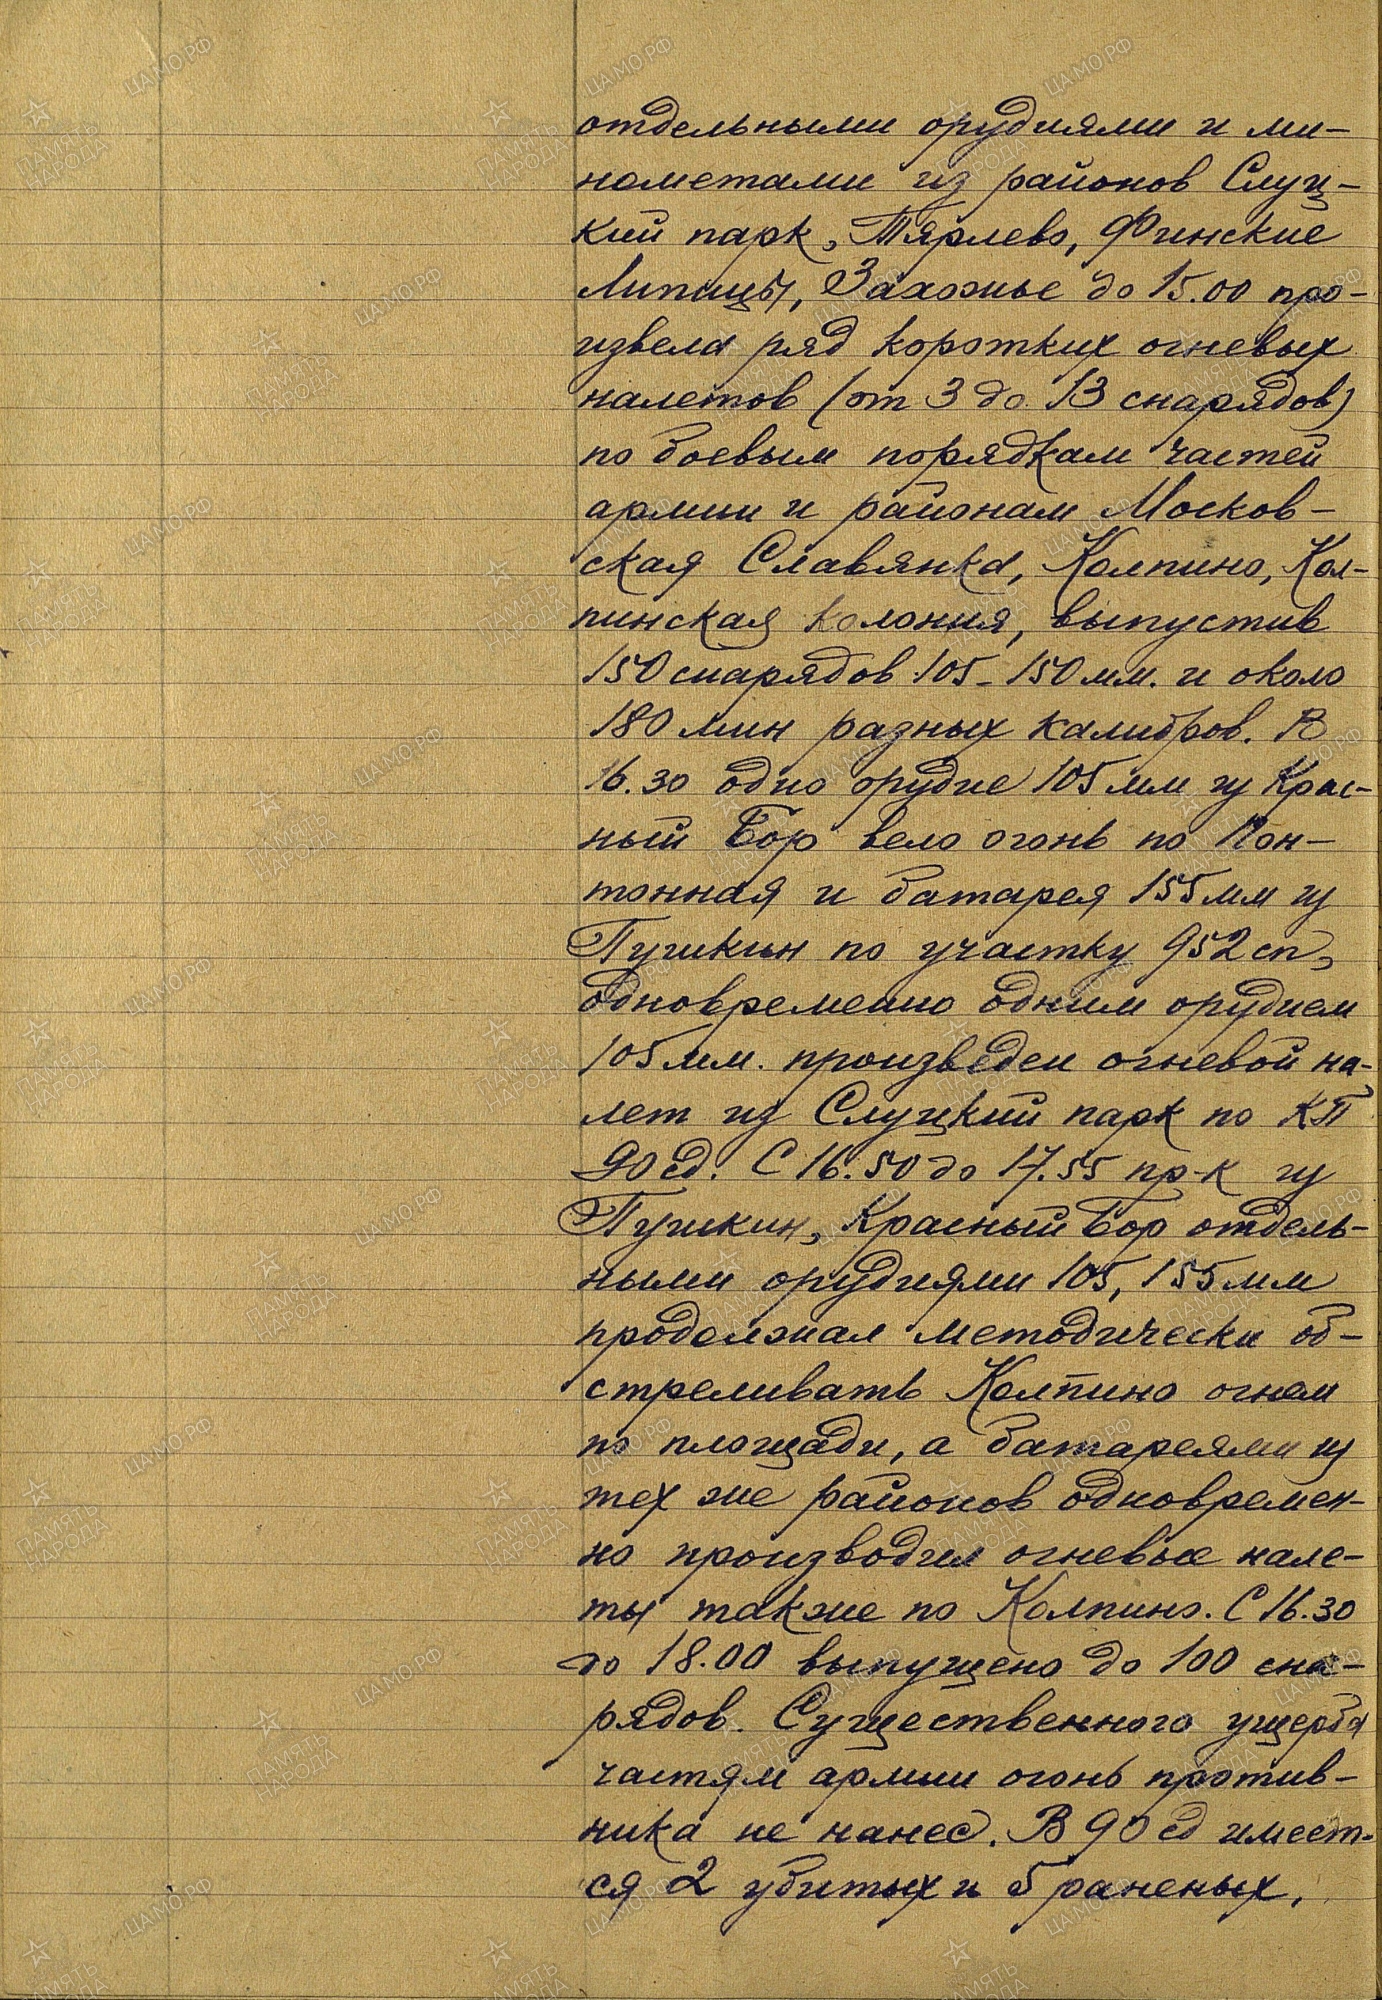 отдельными орудиями и ми-
нометами из районов Слуц-
кий парк, Тярлево, Финские
Липицы, Захожье до 15.00 про-
извела ряд коротких огневых
налетов (от 3 до 13 снарядов)
по боевым порядкам частей
армии и районам Москов-
ская Славянка, Колпино, Кол-
пинская колония, выпустив
150 снарядов 105-150 мм. и около
180 мин разных калибров. В
16.30 одно орудие 105 мм из Крас-
ный Бор вело огонь по Пон-
тонная и батарея 155 мм из
Пушкин по участку 952 сп,
одновременно одним орудием
105 мм. произведен огневой на-
лет из Слуцкий парк по КП
90 сд. С 16.50 до 17.55 пр-к из
Пушкин, Красный Бор отдель-
ными орудиями 105, 155 мм
продолжал методически об-
стреливать Колпино огнем
по площади, а батареями из
тех же районов одновремен-
но производил огневые нале-
ты также по Колпино. С 16.30
до 18.00 выпущено до 100 сна-
рядов. Существенного ущерба
частям армии огонь против-
ника не нанес. В 90 сд имеет-
ся 2 убитых и 5 раненых.
ЦАМО.РФ
ПАМЯТЬ
НАРОДА